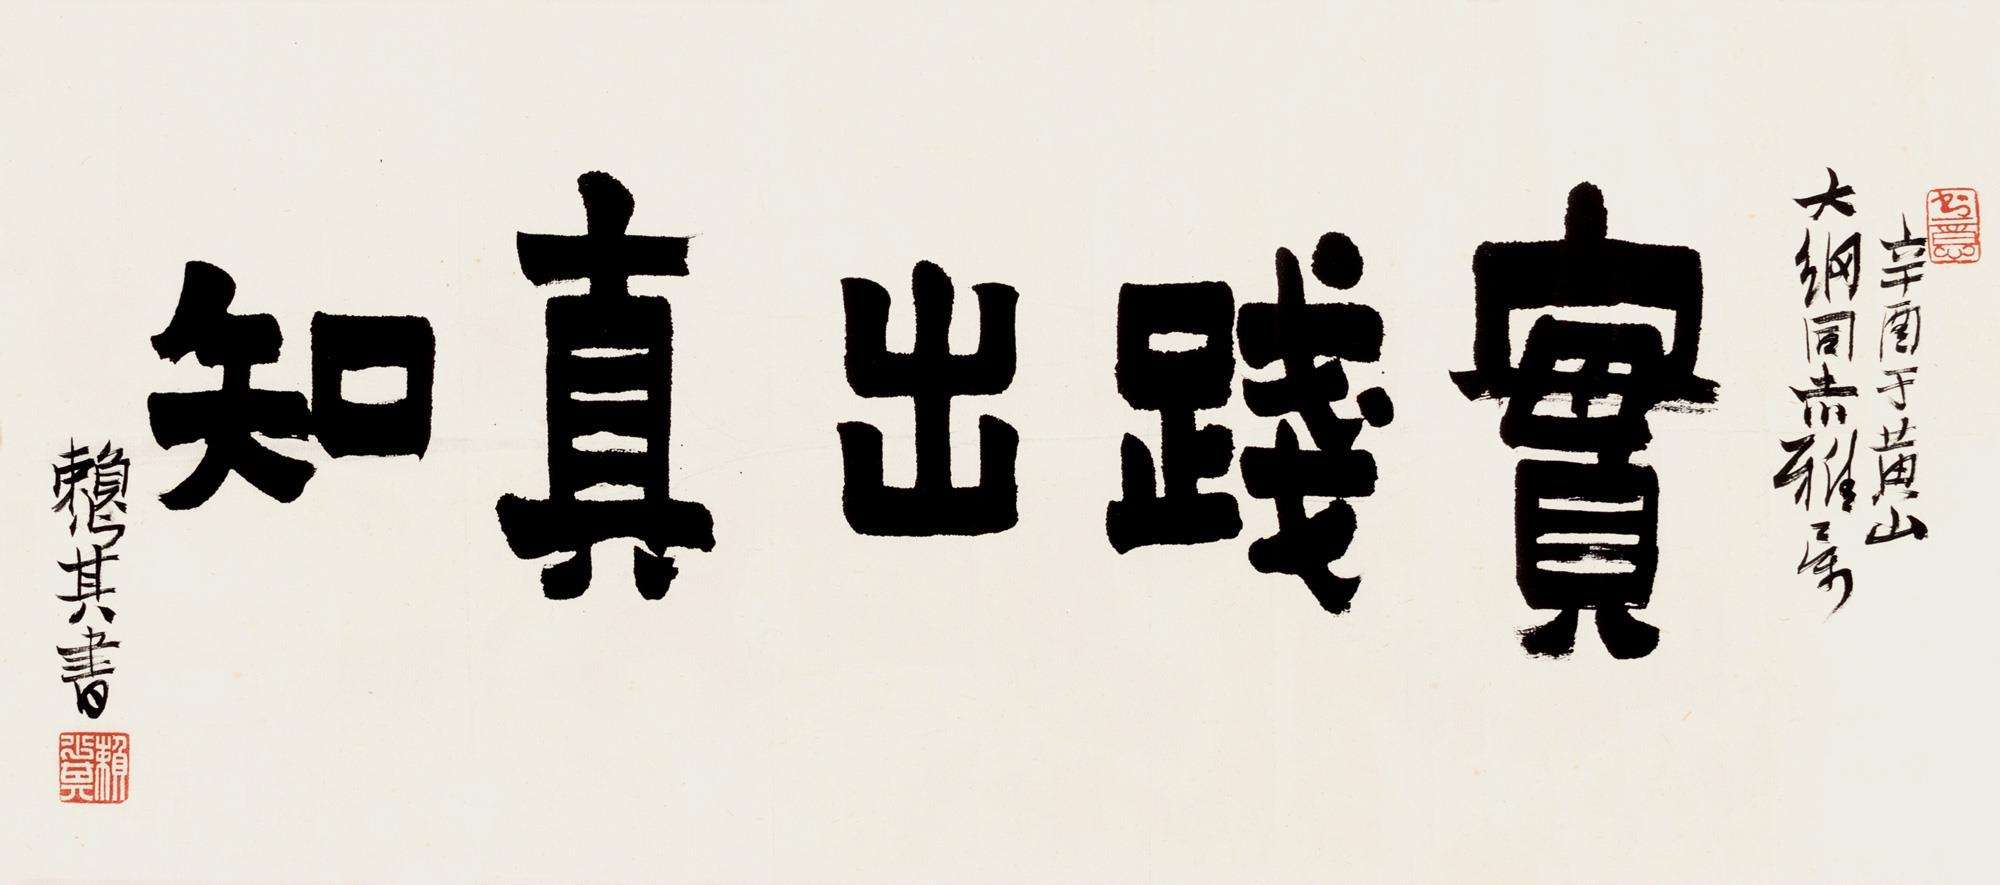 辛酉于黃山
大綱同志雅屬
實踐出真知
賴少其書
賴少其